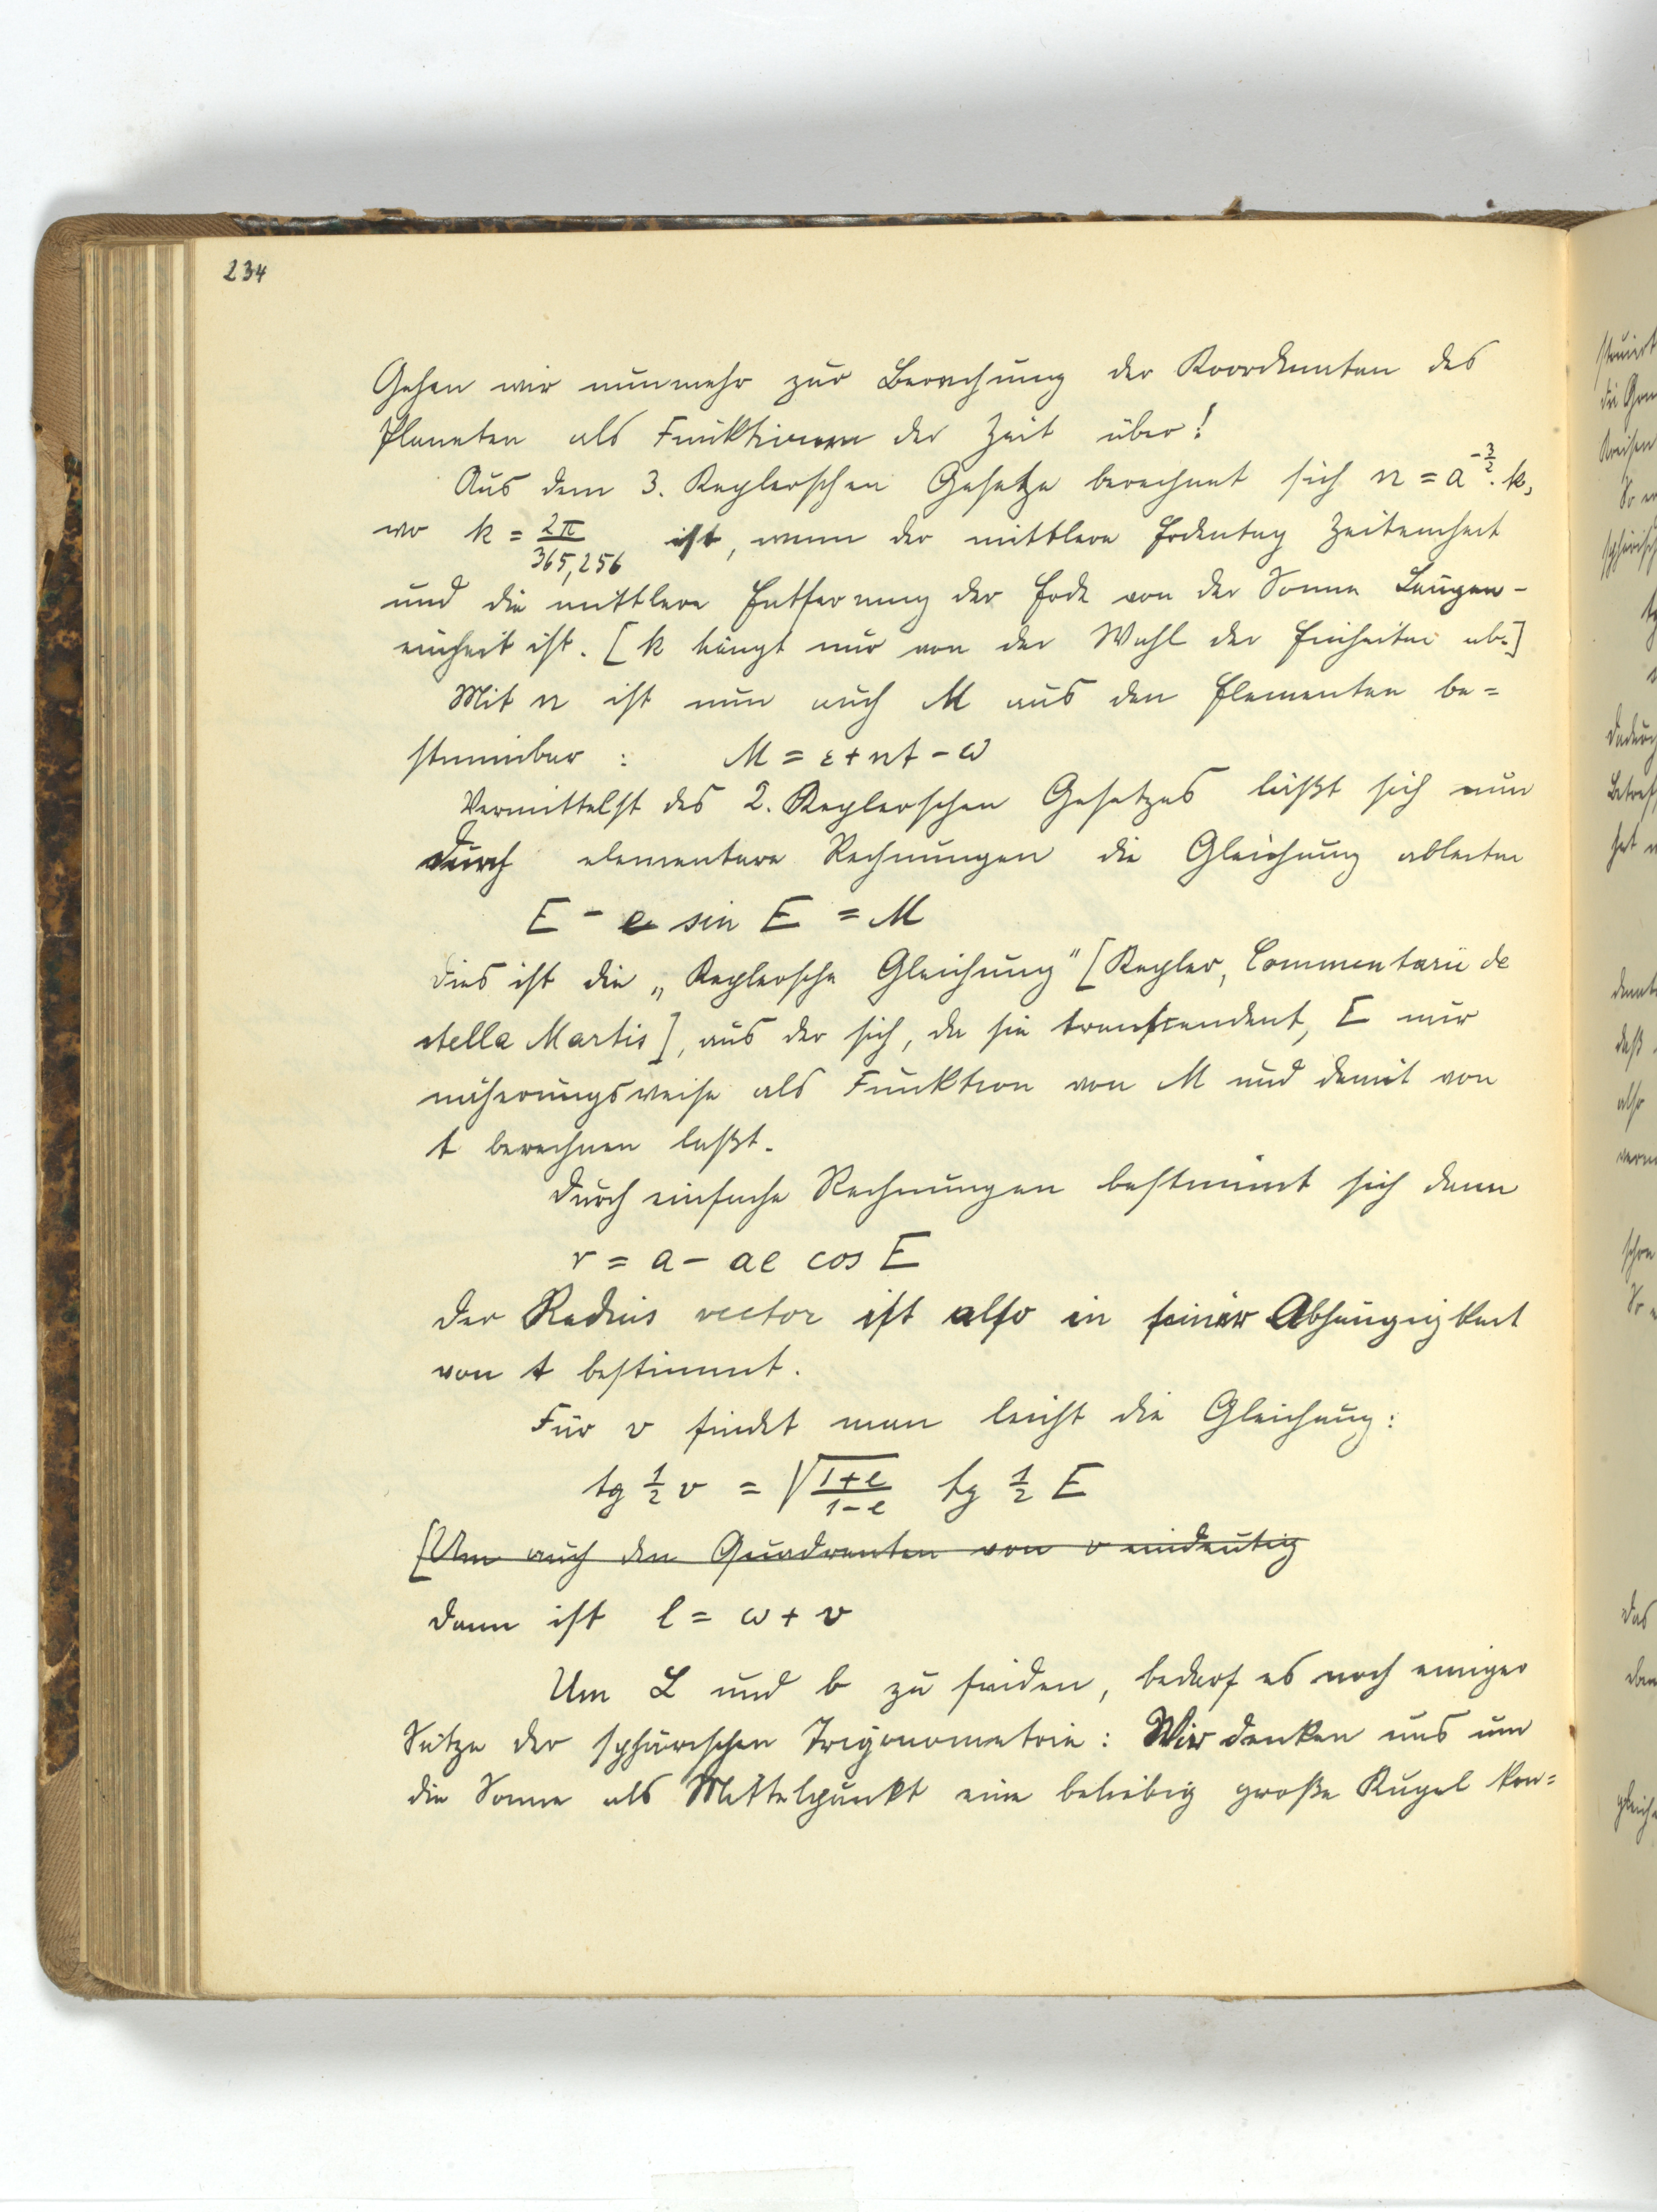 234
Gehen wir nunmehr zur Berechnung der Koordinaten des
Planeten als Funktionen der Zeit über!
Aus dem 3. Keplerschen Gesetze berechnet sich n = a^{-3/2} · k,
wo k = 2π/365,256 ist, wenn der mittlere Erdentag Zeiteinheit
und die mittlere Entfernung der Erde von der Sonne Längen-
einheit ist. [k hängt nur von der Wahl der Einheiten ab.]
Mit n ist nun auch M aus den Elementen be=
stimmbar : M = ε + nt - ω
Vermittelst des 2. Keplerschen Gesetzes läßt sich nun
durch elementare Rechnungen die Gleichung ableiten
E - e sin E = M
Dies ist die „Keplersche Gleichung" [Kepler, Commentarii de
stella Martis], aus der sich, da sie transcendent, E nur
näherungsweise als Funktion von M und damit von
t berechnen läßt.
Durch einfache Rechnungen bestimmt sich dann
r = a - ae cos E
Der Radius vector ist also in seiner Abhängigkeit
von t bestimmt.
Für v findet man leicht die Gleichung:
tg 1/2 v = √(1+e/1-e) tg 1/2 E
[Um auch den Quadranten von v eindeutig
Dann ist l = ω + v
Um L und b zu finden, bedarf es noch einiger
Sätze der sphärischen Trigonometrie: Wir denken uns um
die Sonne als Mittelpunkt eine beliebig große Kugel kon=